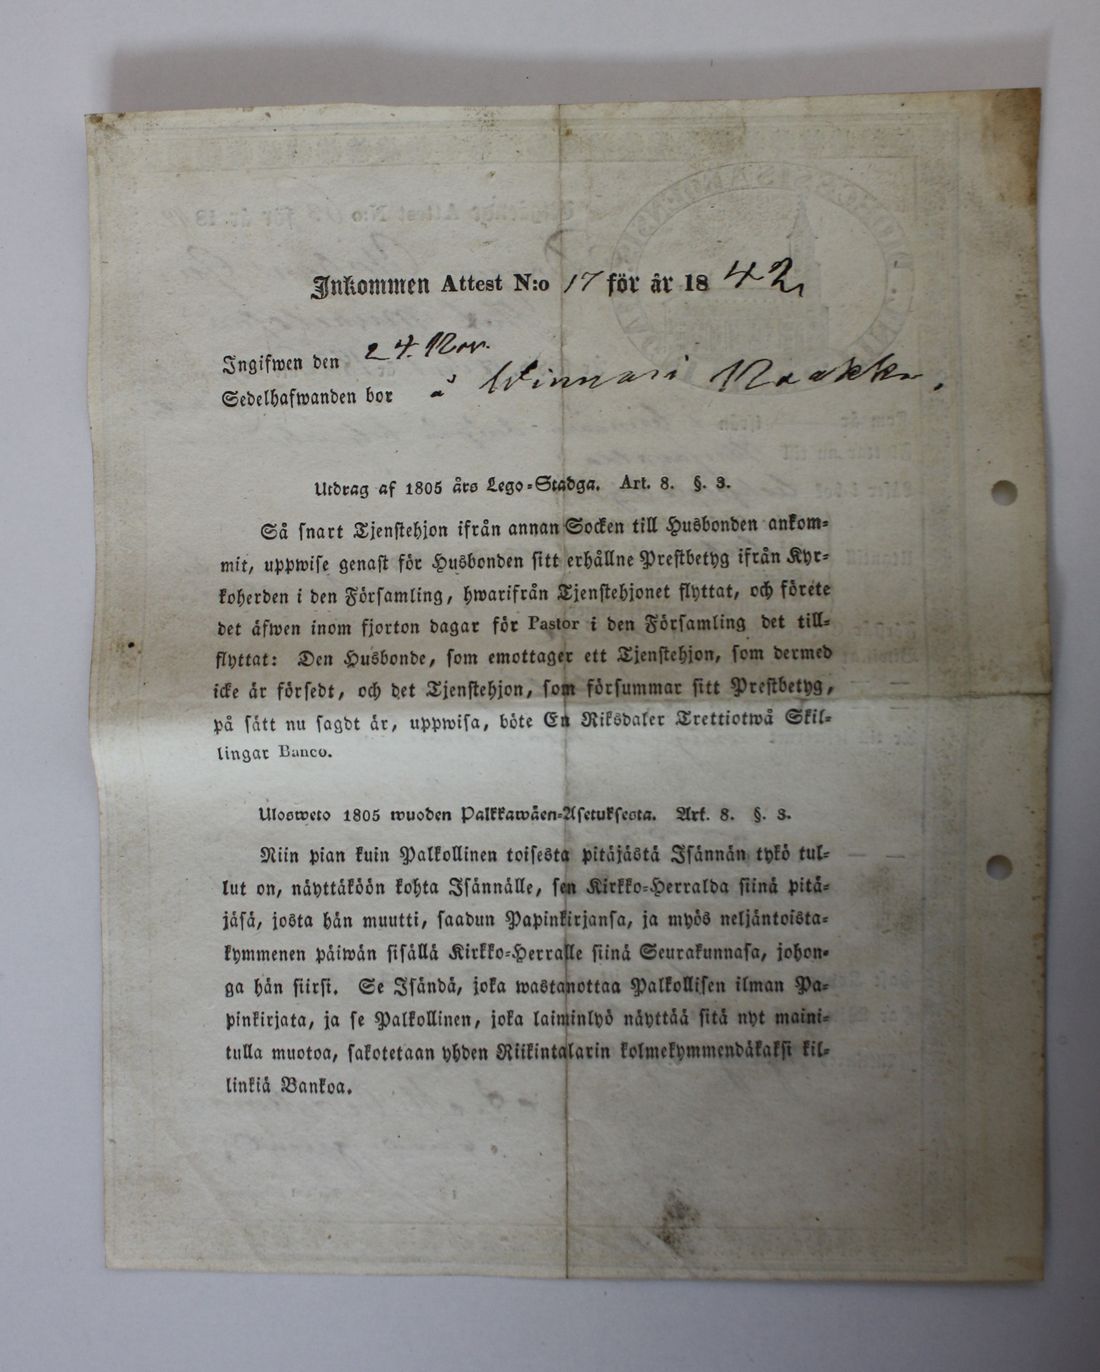 Inkommen Attest N:o 17 för år 1842
Ingifwen den 24. Nov.
Sedelhafwanden bor å Winnari Raakku.
Utdrag af 1805 års Lego-Stadga. Art. 8. §. 3.
Så snart Tjenstehjon ifrån annan Socken till Husbonden ankom=
mit, uppwise genast för Husbonden sitt erhållne Prestbetyg ifrån Kyr=
koherden i den Församling, hwarifrån Tjenstehjonet flyttat, och förete
det äfwen inom fjorton dagar för Pastor i den Församling det till=
flyttat: Den Husbonde, som emottager ett Tjenstehjon, som dermed
icke är försedt, och det Tjenstehjon, som försummar sitt Prestbetyg,
på sätt nu sagdt är, uppwisa, böte En Riksdaler Trettiotwå Skil=
lingar Banco.
Ulosweto 1805 wuoden Palkkawäen=Asetuksesta. Art. 8. §. 3.
Niin pian kuin Palkollinen toisesta pitäjästä Isännän tykö tul=
lut on, näyttäköön kohta Isännälle, sen Kirkko=Herralda siinä pitä=
jäsä, josta hän muutti, saadun Papinkirjansa, ja myös neljäntoista=
kymmenen päiwän sisällä Kirkko=Herralle siinä Seurakunnasa, johon=
ga hän siirsi. Se Isändä, joka wastanottaa Palkollisen ilman Pa=
pinkirjata, ja se Palkollinen, joka laiminlyö näyttää sitä nyt maini=
tulla muotoa, sakotetaan yhden Riikintalarin kolmekymmendäkaksi kil=
linkiä Bankoa.